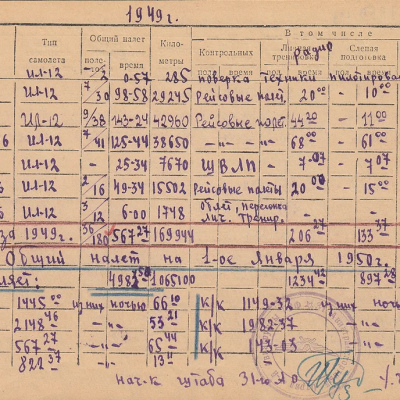 1949г.
Тип самолета Общий налет Кило-метры В том числе
поло-   время Контрольных Личная тренировка радио Слепая подготовка
пол. время пол. время пол. время
Ил-12 2/3 0-57 285 поверка техники пилотирован
Ил-12 7/30 98-58 29245 Рейсовые полет. 20 00 - 10 00
Ил-12 9/38 143-24 42960 Рейсовые полет. 44 20 - 11 00
6 Ил-12 7/41 125-44 38650 -"- -"- 68 00 - 61 00
- Ил-12 - 25-34 7670 ШВЛП - 7-07 7 07
5 Ил-12 2/16 49-34 15502 Рейсовые полеты 20 00 - 15 00
3 Ил-12 3/12 6-00 1748 облет, перегонка лич. тренир.
за 1949г. 36/180 567 27 169944 206 27 133 37
Общий налет на 1-ое Января 1950г.
ляет: 4982 1065100 1234 42 897 28
1445 00 из них ночью 66 10 К/К 1149-32 из них ночью
2148 46 -"- 53 21 К/К 1982-37 -"-
567 27 -"- 65 44 К/К 43-03 -"-
821 37 -"- 13 11
нач-к штаба 31-го АО